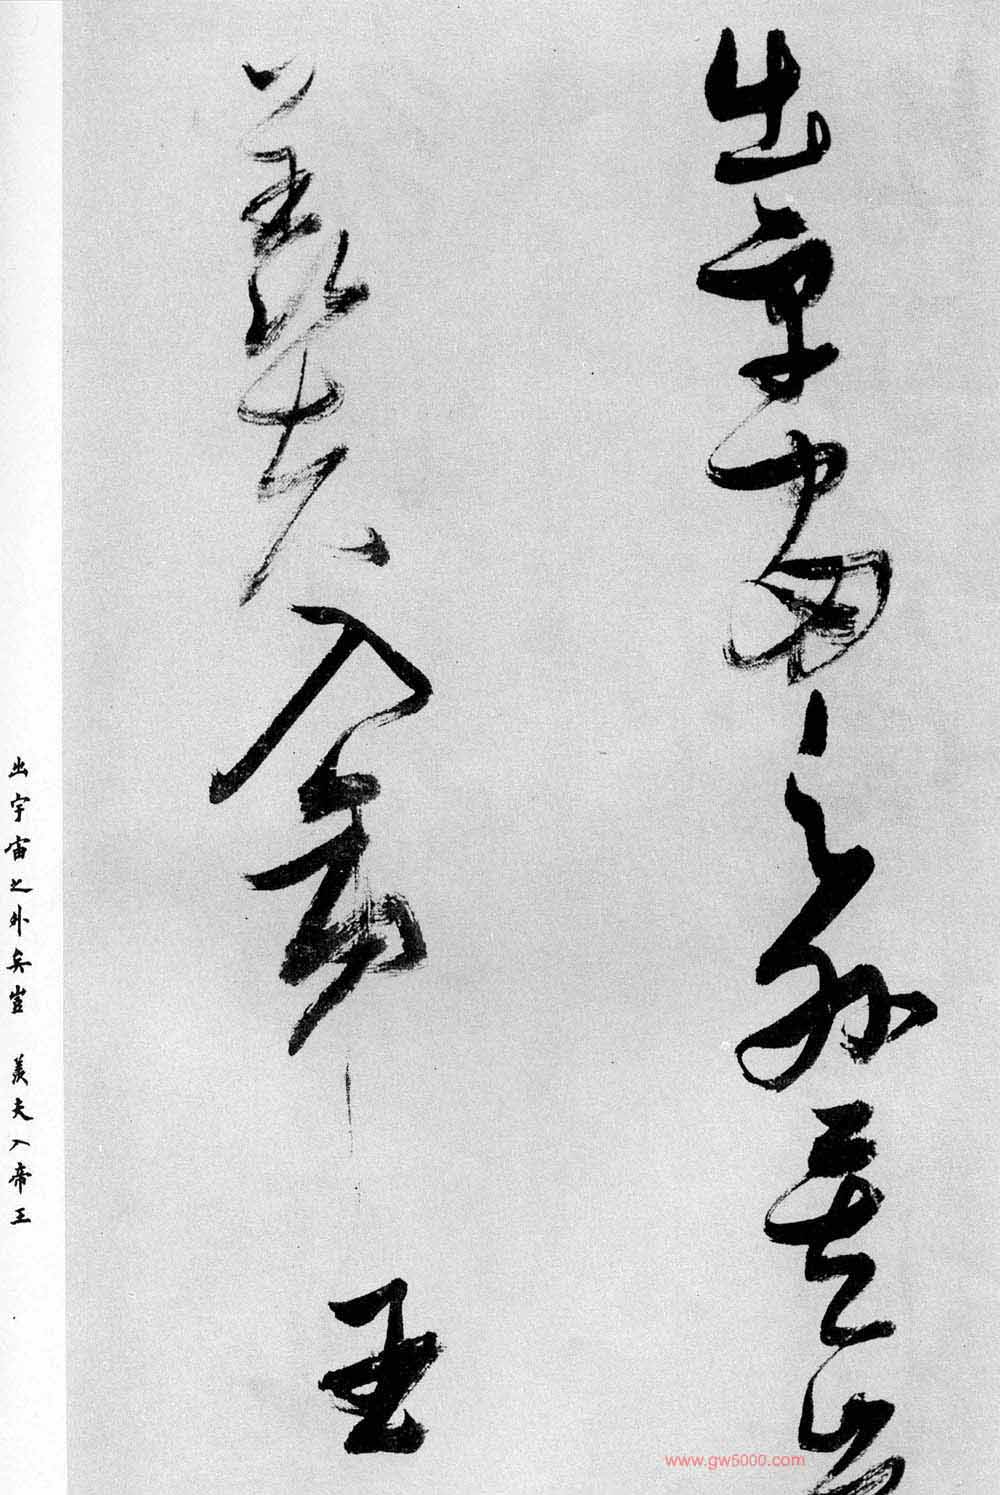 出宇宙之外矣豈
羡夫入帝
王
出宇宙之外矣豈 羡夫入帝王
www.gw5000.com